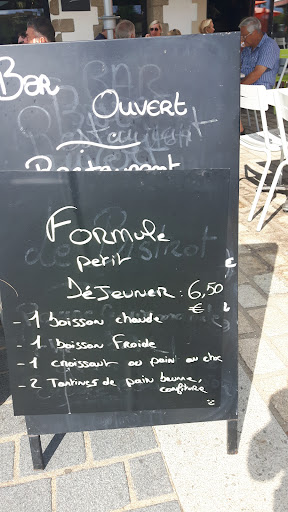 Bar
Ouvert
Restaurant
Formule
petit
Déjeuner : 6,50
€
- 1 boisson chaude
- 1 boisson Froide
- 1 croissant ou pain au choc
- 2 Tartines de pain beurre,
confiture